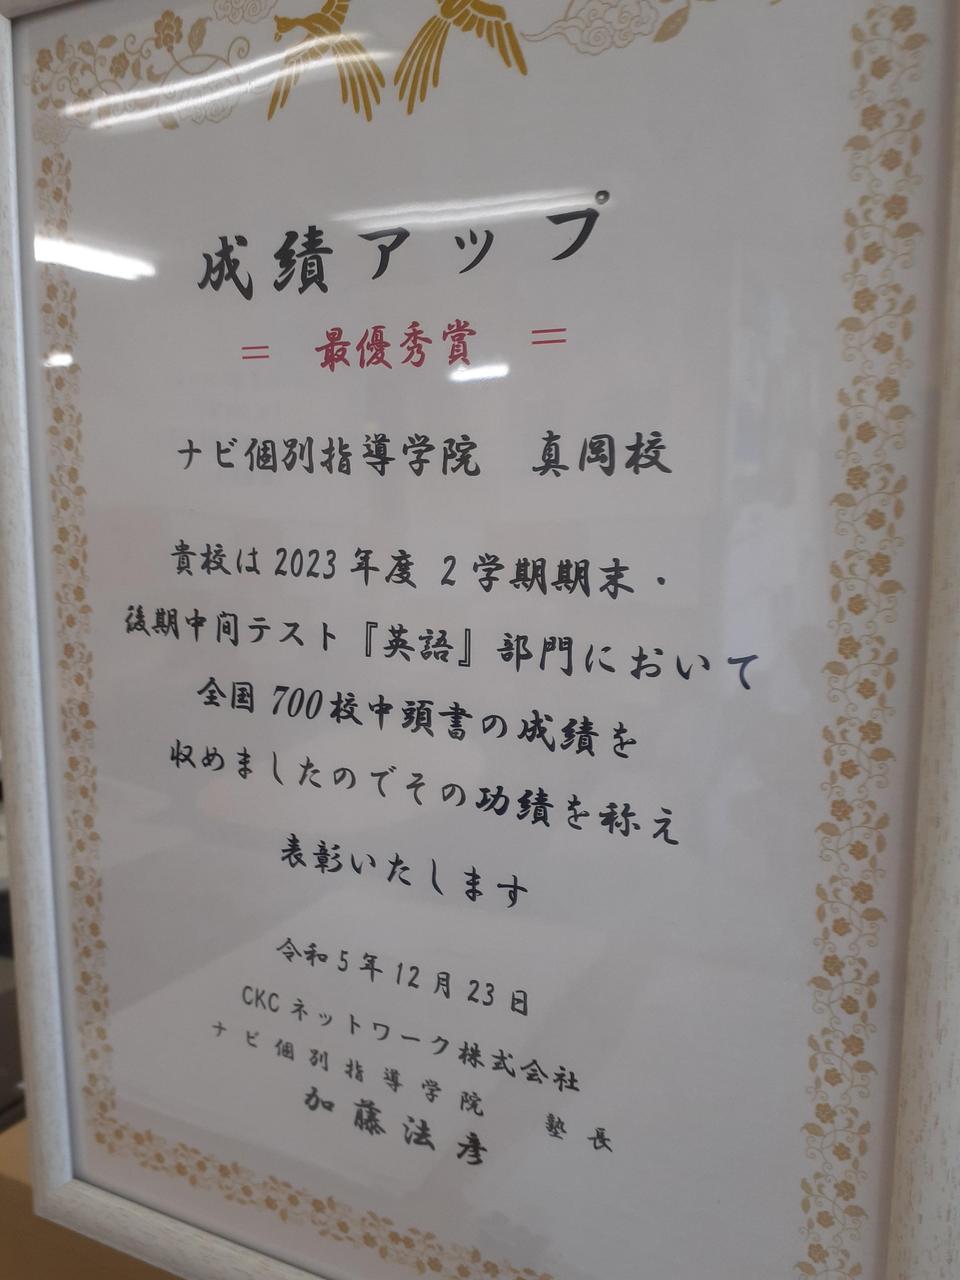 成績アップ
= 最優秀賞 =
ナビ個別指導学院 真岡校
貴校は2023年度 2学期期末・
後期中間テスト『英語』部門において
全国700校中頭書の成績を
収めましたのでその功績を称え
表彰いたします
令和5年12月23日
CKCネットワーク株式会社
ナビ個別指導学院 塾長
加藤法彦